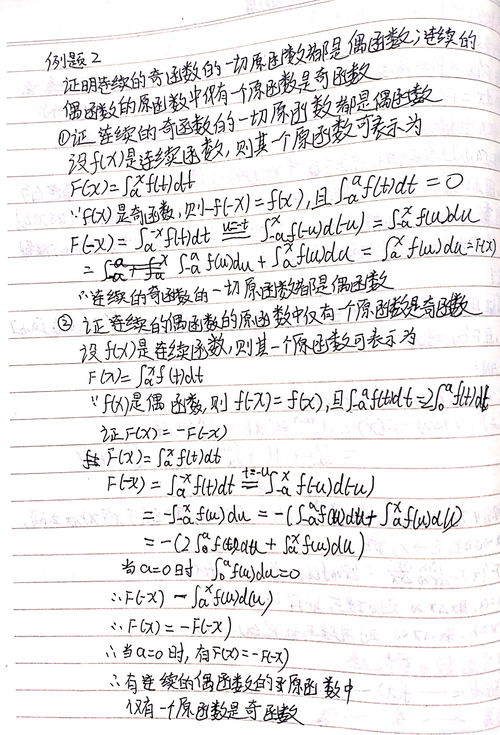 例题2
证明连续的奇函数的一切原函数都是偶函数;连续的
偶函数的原函数中仅有一个原函数是奇函数
①证 连续的奇函数的一切原函数都是偶函数
设f(x)是连续函数,则其一个原函数可表示为
F(x)=∫ₐˣf(t)dt
∵f(x)是奇函数,则-f(-x)=f(x),且∫₋ₐᵃf(t)dt=0
F(-x)=∫ₐ⁻ˣf(t)dt u=-t ∫₋ₐˣf(-u)d(-u)=∫₋ₐˣf(u)du
= ∫₋ₐᵃf(u)du+∫ₐˣf(u)du=∫ₐˣf(u)du=F(x)
∴连续的奇函数的一切原函数都是偶函数
②证连续的偶函数的原函数中仅有一个原函数是奇函数
设f(x)是连续函数,则其一个原函数可表示为
F(x)=∫ₐˣf(t)dt
∵f(x)是偶函数,则f(-x)=f(x),且∫₋ₐᵃf(t)dt=2∫₀ᵃf(t)dt
证F(x)=-F(-x)
F(x)=∫ₐˣf(t)dt
F(-x)=∫ₐ⁻ˣf(t)dt t=-u ∫₋ₐˣf(-u)d(-u)
=-∫₋ₐˣf(u)du=-(∫₋ₐᵃf(u)du+∫ₐˣf(u)du)
=-(2∫₀ᵃf(u)du+∫ₐˣf(u)du)
当a=0时 ∫₀ᵃf(u)du=0
∴F(-x)-∫ₐˣf(u)d(u)
∴F(x)=-F(-x)
∴当a=0时,有F(x)=-F(-x)
∴有连续的偶函数的原函数中
仅有一个原函数是奇函数